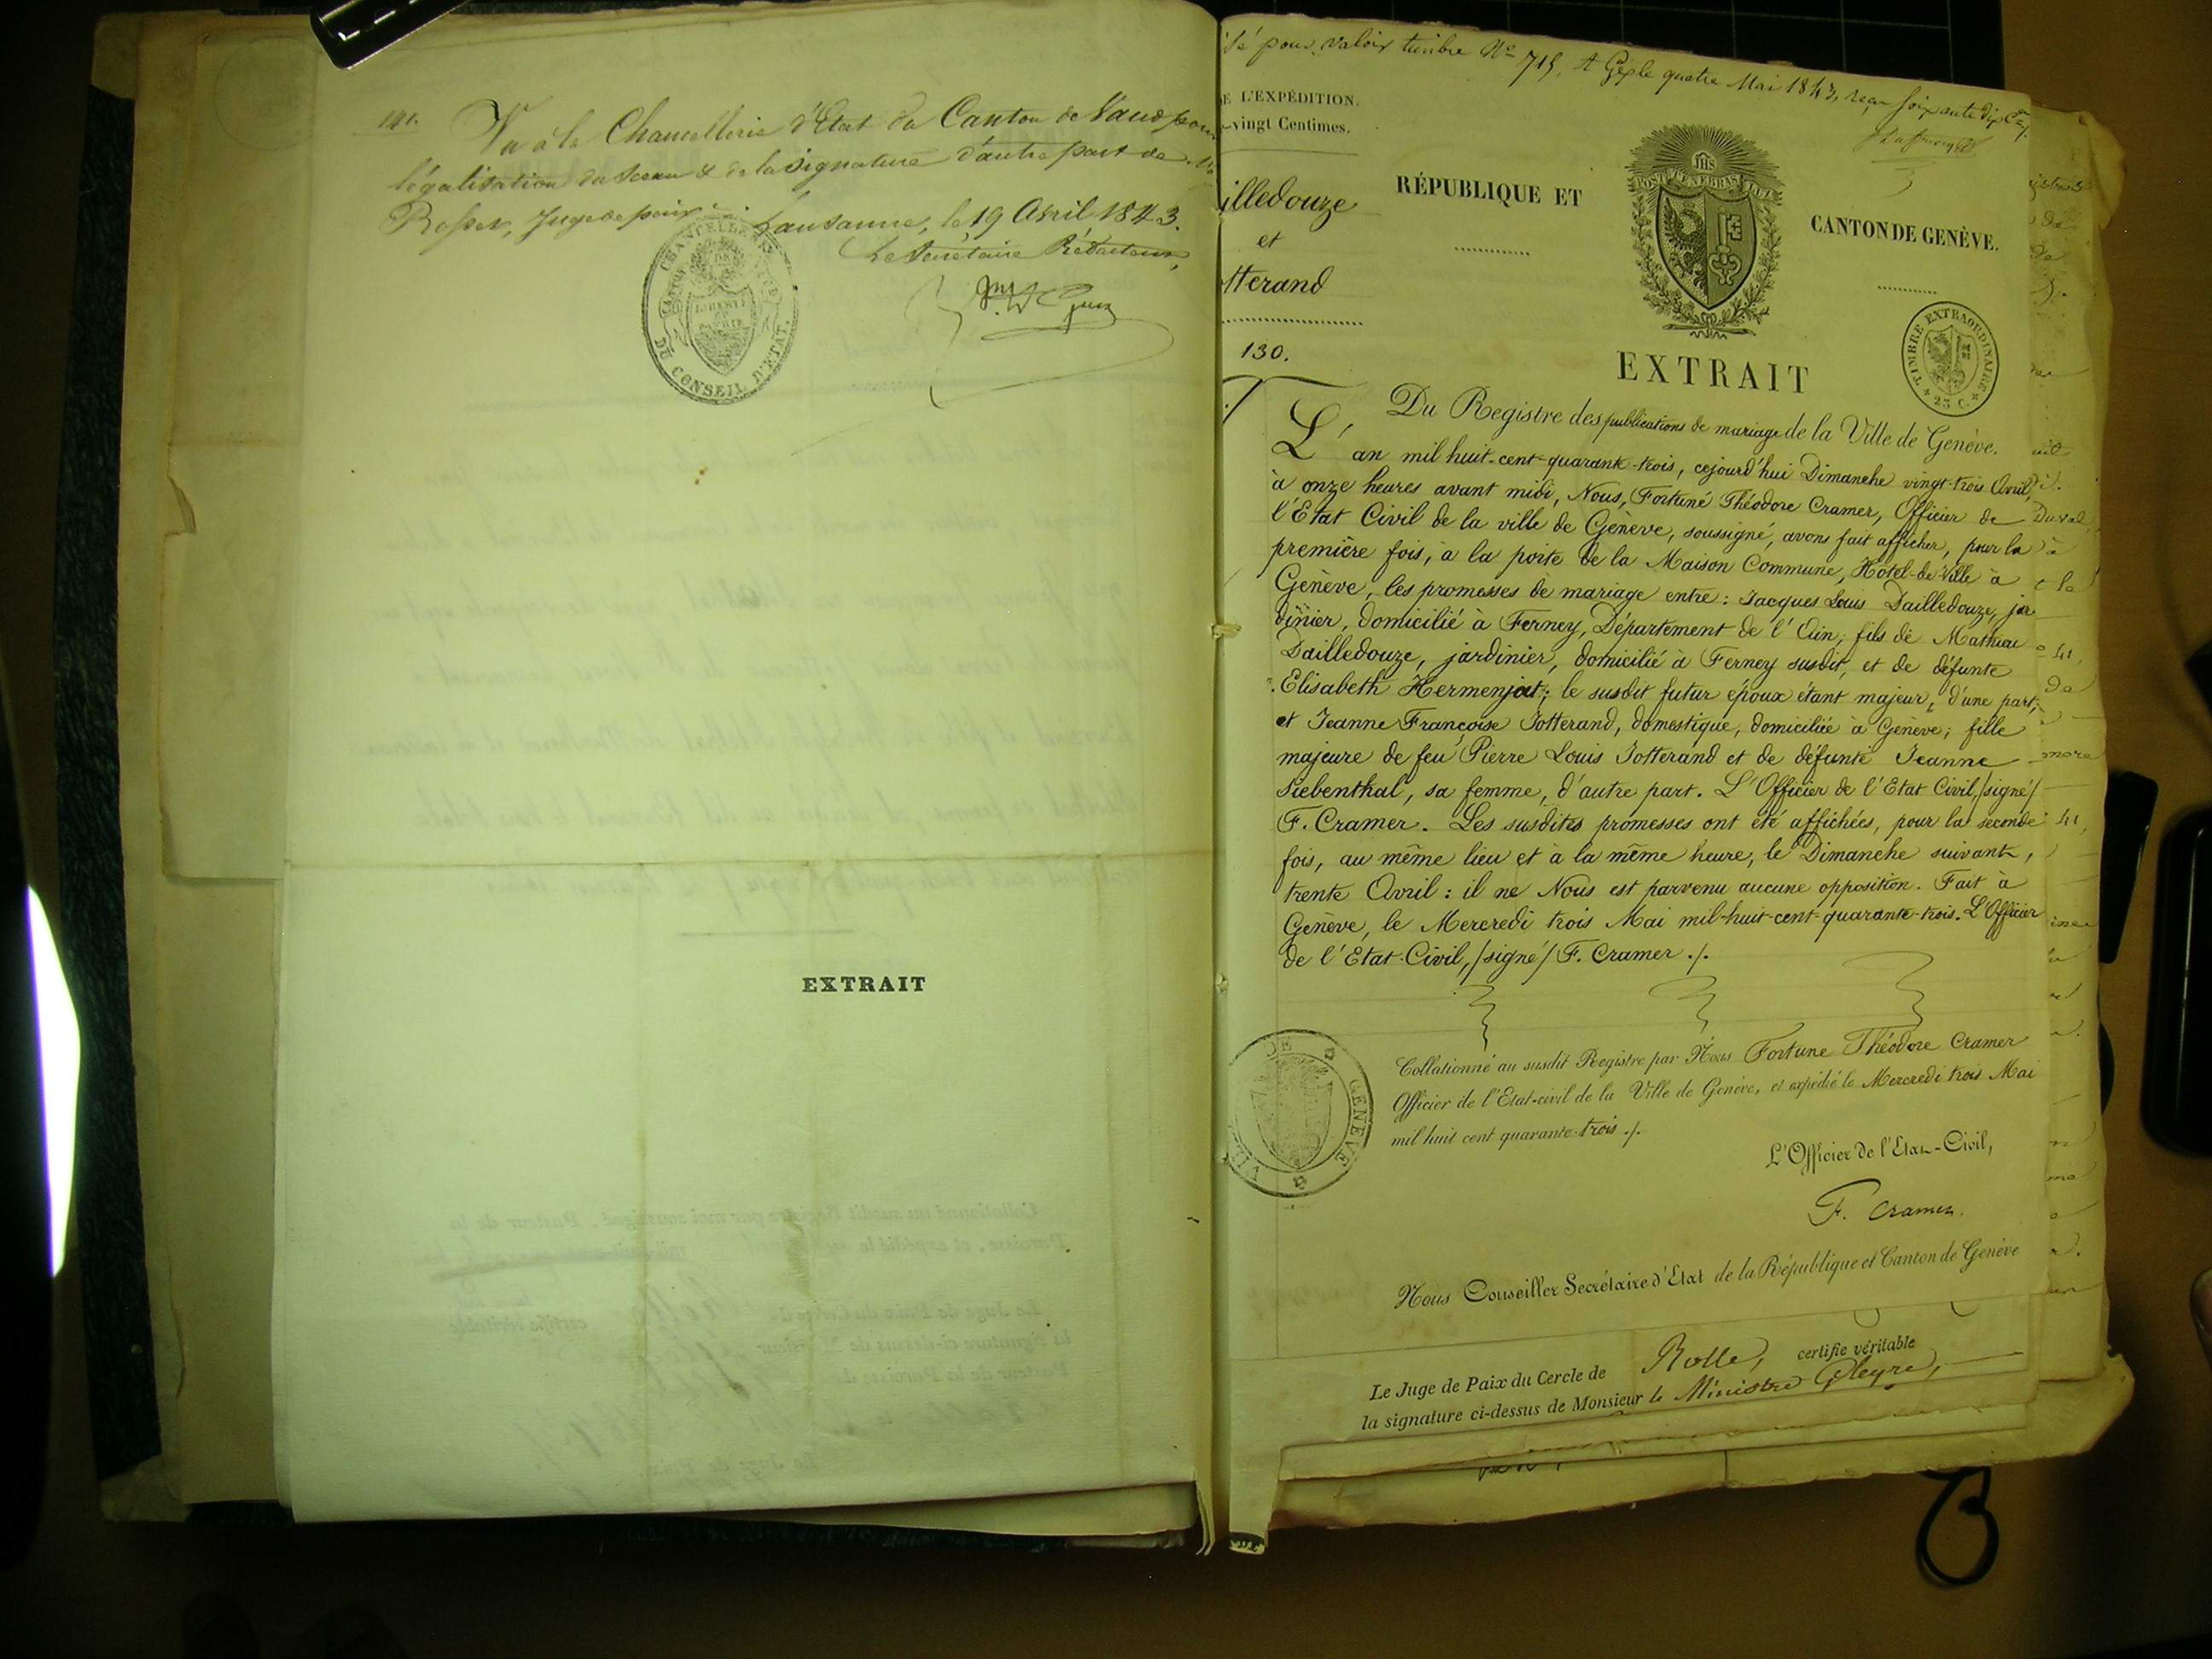 141.
Vu à la Chancellerie d'Etat du Canton de Vaud pour
légalisation du sceau & de la signature d'autre part de Mr.
Rosset, Juge de paix. Lausanne, le 19 Avril 1843.
Le Secrétaire Rédacteur,
CHANCELLERIE
DU CONSEIL D'ETAT.
CANTON DE VAUD
LIBERTÉ ET PATRIE
EXTRAIT
sé pour valoir timbre No 715, A Gex le quatre Mai 1843, reçu soixante dix c.
E L'EXPÉDITION.
vingt Centimes.
illedouze
et
tterand
130.
RÉPUBLIQUE ET
CANTON DE GENÈVE.
IHS
POST TENEBRAS LUX
TIMBRE EXTRAORDINAIRE
25 C.
EXTRAIT
Du Registre des publications de mariage de la Ville de Genève.
L'an mil huit-cent-quarante-trois, cejourd'hui Dimanche vingt-trois Avril,
à onze heures avant midi, Nous, Fortuné Théodore Cramer, Officier de
l'Etat Civil de la ville de Genève, soussigné, avons fait afficher, pour la
première fois, à la porte de la Maison Commune, Hôtel-de-Ville à
Genève, les promesses de mariage entre : Jacques Louis Dailledouze, jar
dinier, domicilié à Ferney, Département de l'Ain, fils de Mathieu
Dailledouze, jardinier, domicilié à Ferney susdit, et de défunte
Elisabeth Hermenjat ; le susdit futur époux étant majeur, d'une part ;
et Jeanne Françoise Jotterand, domestique, domiciliée à Genève ; fille
majeure de feu Pierre Louis Jotterand et de défunte Jeanne
Siebenthal, sa femme, d'autre part. L'Officier de l'Etat Civil, /signé/
F. Cramer. Les susdites promesses ont été affichées, pour la seconde
fois, au même lieu et à la même heure, le Dimanche suivant,
trente Avril : il ne Nous est parvenu aucune opposition. Fait à
Genève, le Mercredi trois Mai mil-huit-cent-quarante-trois. L'Officier
de l'Etat-Civil, /signé/ F. Cramer ./.
VILLE DE GENÈVE
Collationné au susdit Registre par Nous Fortuné Théodore Cramer
Officier de l'Etat-civil de la Ville de Genève, et expédié le Mercredi trois Mai
mil huit cent quarante-trois ./.
L'Officier de l'Etat-Civil,
F. Cramer.
Nous Conseiller Secrétaire d'Etat de la République et Canton de Genève
Le Juge de Paix du Cercle de Rolle, certifie véritable
la signature ci-dessus de Monsieur le Ministre Gleyre,